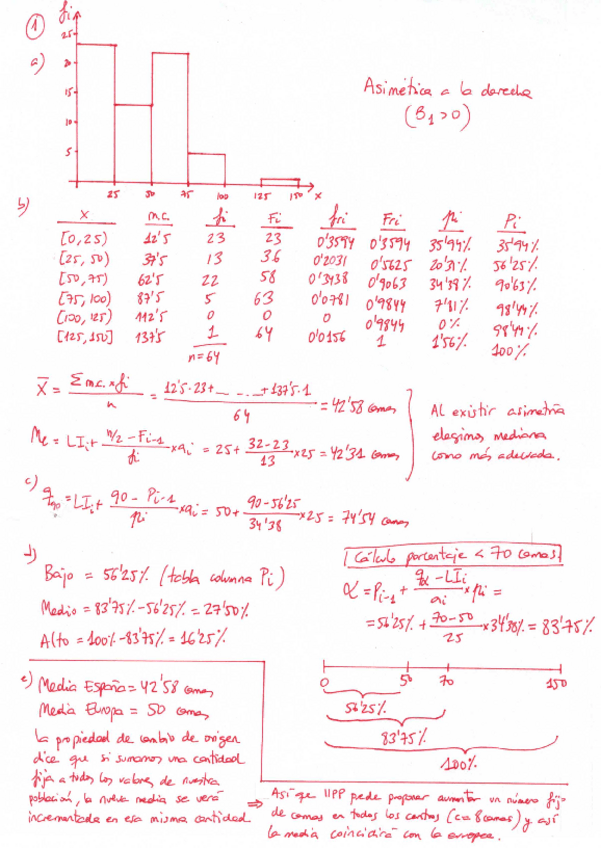 1
a)
fi
25
20
15
10
5
25 50 75 100 125 150 x
Asimética a la derecha
(B1>0)
b)
x m.c. fi Fi fri Fri pi Pi
[0,25) 12'5 23 23 0'3594 0'3594 35'94% 35'94%
[25,50) 37'5 13 36 0'2031 0'5625 20'31% 56'25%
[50,75) 62'5 22 58 0'3438 0'9063 34'38% 90'63%
[75,100) 87'5 5 63 0'0781 0'9844 7'81% 98'44%
[100,125) 112'5 0 0 0 0'9844 0% 98'44%
[125,150] 137'5 1 64 0'0156 1 1'56% 100%
n=64
X̄ = Σ m.c. x fi / n = 12'5·23+......+137'5·1 / 64 = 42'58 camas
Me = LIi + n/2 - Fi-1 / fi x ai = 25 + 32-23 / 13 x25 = 42'31 camas
Al existir asimetría
elegimos mediana
como más adecuada.
c)
q90 = LIi + 90 - Pi-1 / pi x ai = 50 + 90-56'25 / 34'38 x 25 = 74'54 camas
d)
Bajo = 56'25% (tabla columna Pi)
Medio = 83'75% - 56'25% = 27'50%
Alto = 100% - 83'75% = 16'25%
Cálculo porcentaje < 70 camas
α = Pi-1 + qα - LIi / ai x pi =
= 56'25% + 70-50 / 25 x 34'38% = 83'75%
0 50 70 150
56'25%
83'75%
100%
e) Media España = 42'58 camas
Media Europa = 50 camas
la propiedad de cambio de origen
dice que si sumamos una cantidad
fija a todos los valores de nuestra
población, la nueva media se verá
incrementada en esa misma cantidad
⇒ Así que IIPP puede proponer aumentar un número fijo
de camas en todos los centros (c=8camas) y así
la media coincidirá con la europea.